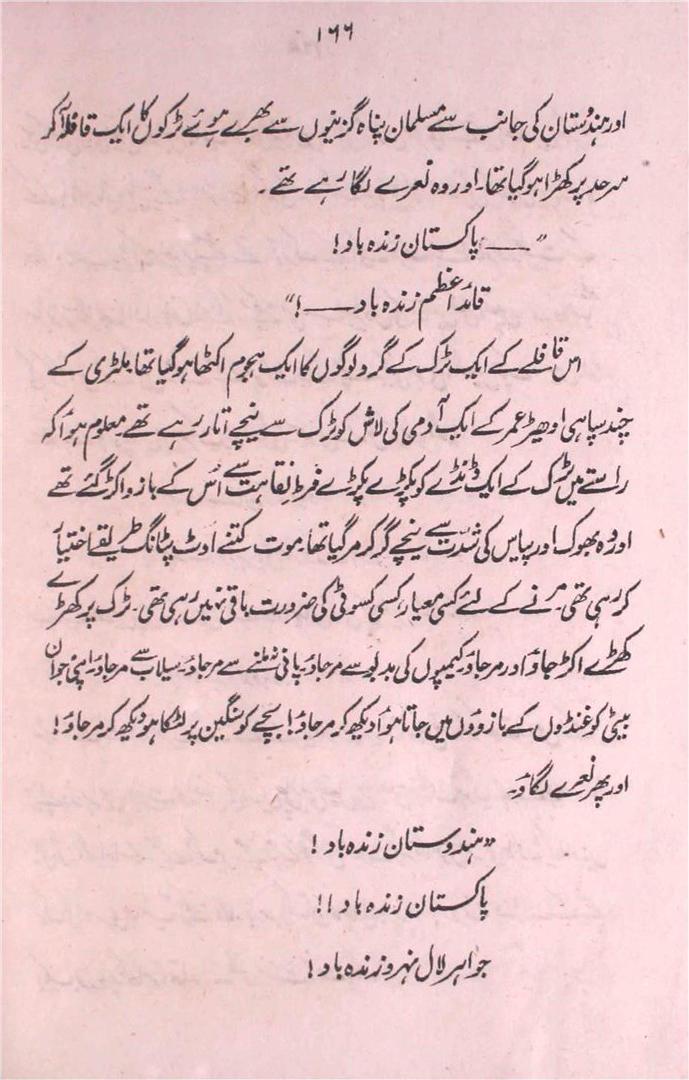 ۱۶۶
اور ہندوستان کی جانب سے مسلمان پناہ گزینوں سے بھرے ہوئے ٹرکوں کا ایک قافلہ آ کر
سرحد پر کھڑا ہو گیا تھا۔ اور وہ نعرے لگا رہے تھے۔
”——؍ پاکستان زندہ باد!
قائد اعظم زندہ باد——!“
اس قافلے کے ایک ٹرک کے گرد لوگوں کا ایک ہجوم اکٹھا ہو گیا تھا۔ ملٹری کے
چند سپاہی ادھیڑ عمر کے ایک آدمی کی لاش کو ٹرک سے نیچے اتار رہے تھے۔ معلوم ہوا کہ
راستے میں ٹرک کے ایک ڈنڈے کو پکڑے پکڑے فرطِ نقاہت سے اُس کے بازو اکڑ گئے تھے
اور وہ بھوک اور پیاس کی شدّت سے نیچے گر کر مر گیا تھا۔ موت کتنے اوٹ پٹانگ طریقے اختیار
کر رہی تھی۔ مرنے کے لئے کسی معیار، کسی کسوٹی کی ضرورت باقی نہیں رہی تھی۔ ٹرک پر کھڑے
کھڑے اکڑ جاؤ اور مر جاؤ۔ کیمپوں کی بدبو سے مر جاؤ۔ پانی نہ ملنے سے مر جاؤ۔ سیلاب سے مر جاؤ۔ اپنی جوان
بیٹی کو غنڈوں کے بازوؤں میں جاتا ہوا دیکھ کر مر جاؤ! بچے کو سنگین پر لٹکا ہو دیکھ کر مر جاؤ!
اور پھر نعرے لگاؤ۔
”ہندوستان زندہ باد!
پاکستان زندہ باد!!
جواہر لال نہرو زندہ باد!